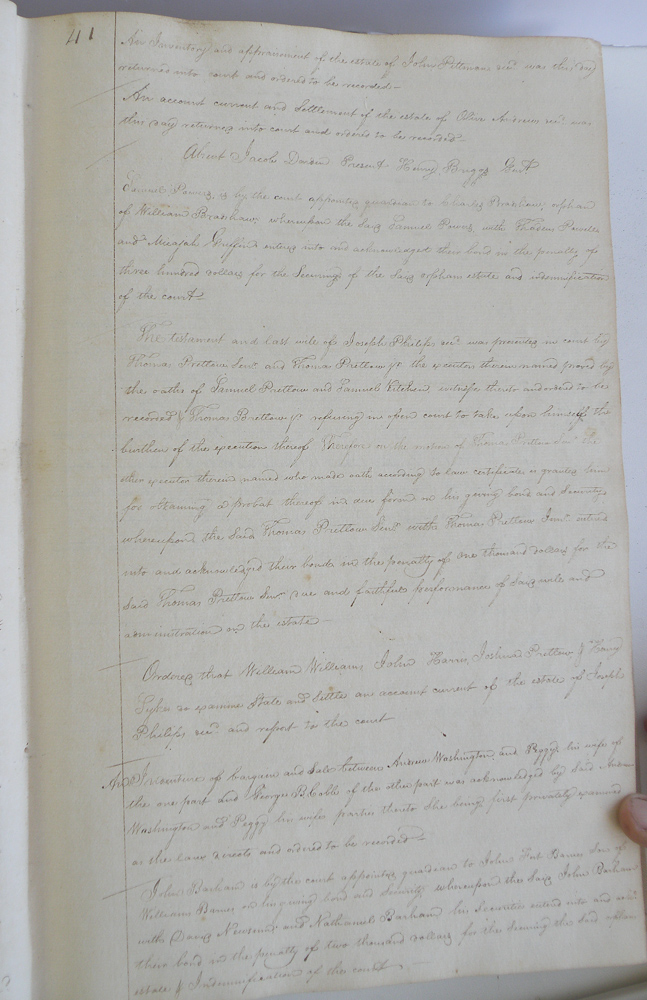 41
An Inventory and appraisment of the estate of John Pittman decd. was this day
returned into court and ordered to be recorded
An account current and settlement of the estate of Olive Andrews decd. was
this day returned into court and ordered to be recorded
Absent Jacob Present Henry Briggs Gent.
Samuel is by the court appointed guardian to Charles Bradshaw, orphan
of William Bradshaw, whereupon the said Samuel with Thomas
and Micajah Griffin entered into and acknowledged their bond in the penalty of
three hundred dollars for the securing of the said orphans estate and indemnification
of the court
The testament and last will of Joseph Philips decd. was presented in court by
Thomas Pretlow Senr. and Thomas Pretlow Jr. the executors therein named proved by
the oaths of Samuel Pretlow and Samuel Kitchen, witnesses thereto and ordered to be
recorded & Thomas Pretlow Jr. refusing in open court to take upon himself the
burthen of the execution thereof Therefore on the motion of Thomas Pretlow Senr. the
other executor therein named who made oath according to law certificate is granted him
for obtaining a probat thereof in due form on his giving bond and security
whereupon the said Thomas Pretlow Senr. with Thomas Pretlow Junr. entered
into and acknowledged their bond in the penalty of one thousand dollars for the
said Thomas Pretlow Senr. due and faithful performance of said will and
administration on the estate
Ordered that William Williams John Harris, Joshua Pretlow & Henry
Sykes do examine State and Settle an account current of the estate of Joseph
Philips decd. and report to the court
An Indenture of bargain and Sale between Andrew Washington and Peggy his wife of
the one part and George B Cobb of the other part was acknowledged by said Andrew
Washington and Peggy his wife parties thereto she being first privately examined
as the law directs and ordered to be recorded
John Barham is by the court appointed guardian to John Barnes Son of
William Barnes on his giving bond and security whereupon the said John Barham
with David Newsum and Nathaniel Barham his Securities entered into and
their bond in the penalty of two thousand dollars for the securing the said orphans
estate & Indemnification of the court